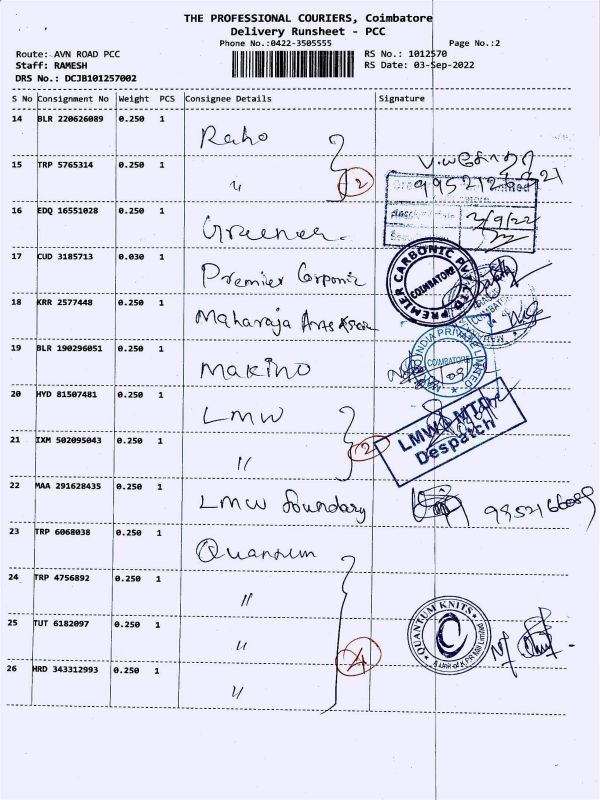 THE PROFESSIONAL COURIERS, Coimbatore
Delivery Runsheet - PCC
Phone No.:0422-3505555 Page No.:2
Route: AVN ROAD PCC RS No.: 1012570
Staff: RAMESH RS Date: 03-Sep-2022
DRS No.: DCJB101257002
S No Consignment No Weight PCS Consignee Details Signature
14 BLR 220626089 0.250 1 Raho
15 TRP 5765314 0.250 1 〃 2
16 EDQ 16551028 0.250 1 Greener 3/9/22
17 CUD 3185713 0.030 1 Premier Carponic
PREMIER CARBONIC PVT LTD
COIMBATORE
18 KRR 2577448 0.250 1 Maharaja Arts
19 BLR 190296051 0.250 1 Makino
INDIA PRIVATE LIMITED
COIMBATORE
20 HYD 81507481 0.250 1 LMW
21 IXM 502095043 0.250 1 〃 2
LMW
Despatch
22 MAA 291628435 0.250 1 LMW foundary
23 TRP 6068038 0.250 1 Quantum
24 TRP 4756892 0.250 1 〃
25 TUT 6182097 0.250 1 〃
QUANTUM KNITS
A Unit of K.P.R Mill Limited
26 HRD 343312993 0.250 1 〃 4